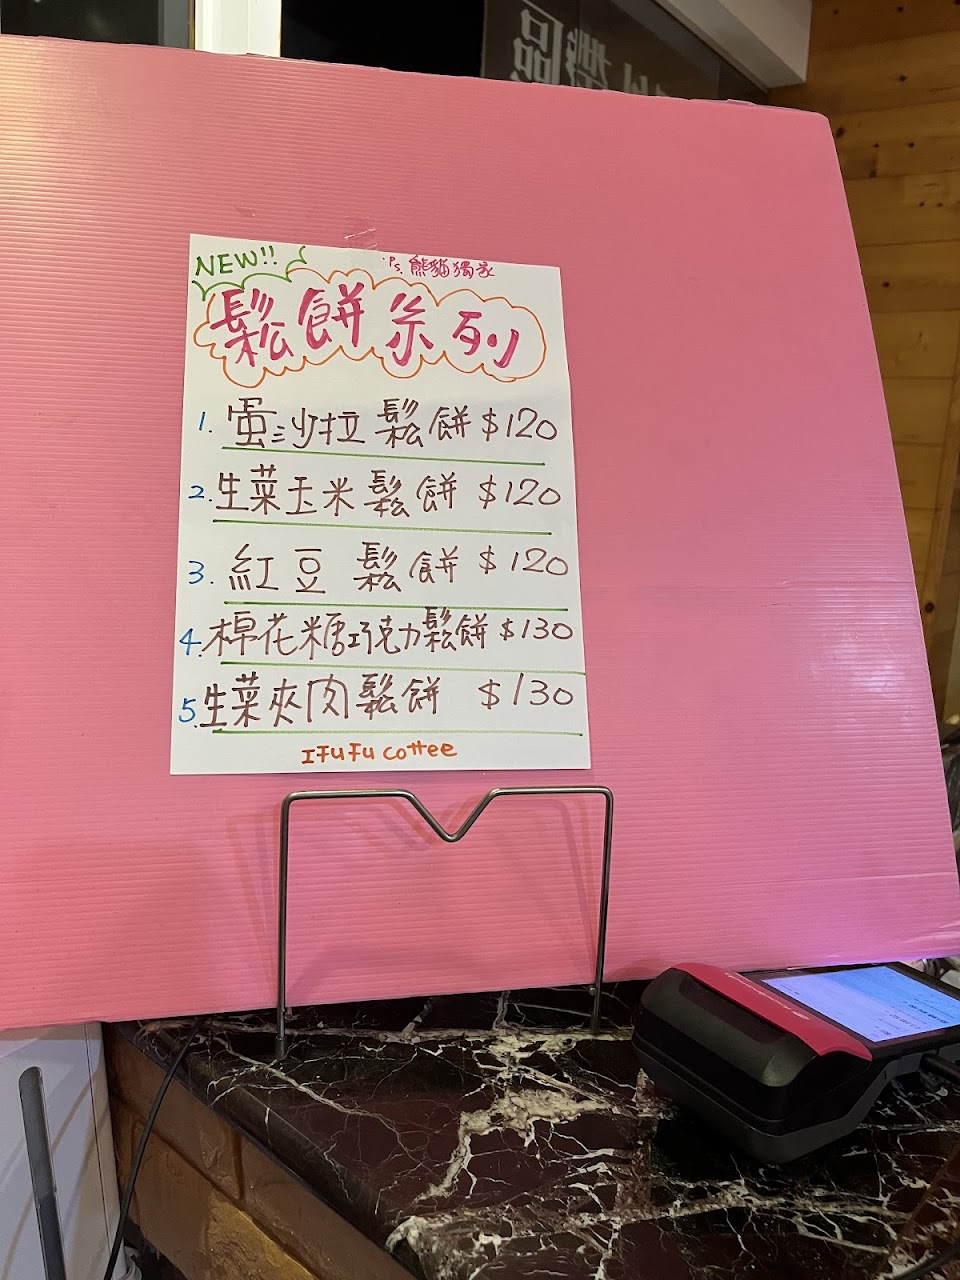 NEW!!
Ps. 熊貓獨家
鬆餅系列
1. 蛋沙拉鬆餅 $120
2. 生菜玉米鬆餅 $120
3. 紅豆 鬆餅 $120
4. 棉花糖巧克力鬆餅 $130
5. 生菜夾肉鬆餅 $130
IFuFu coffee